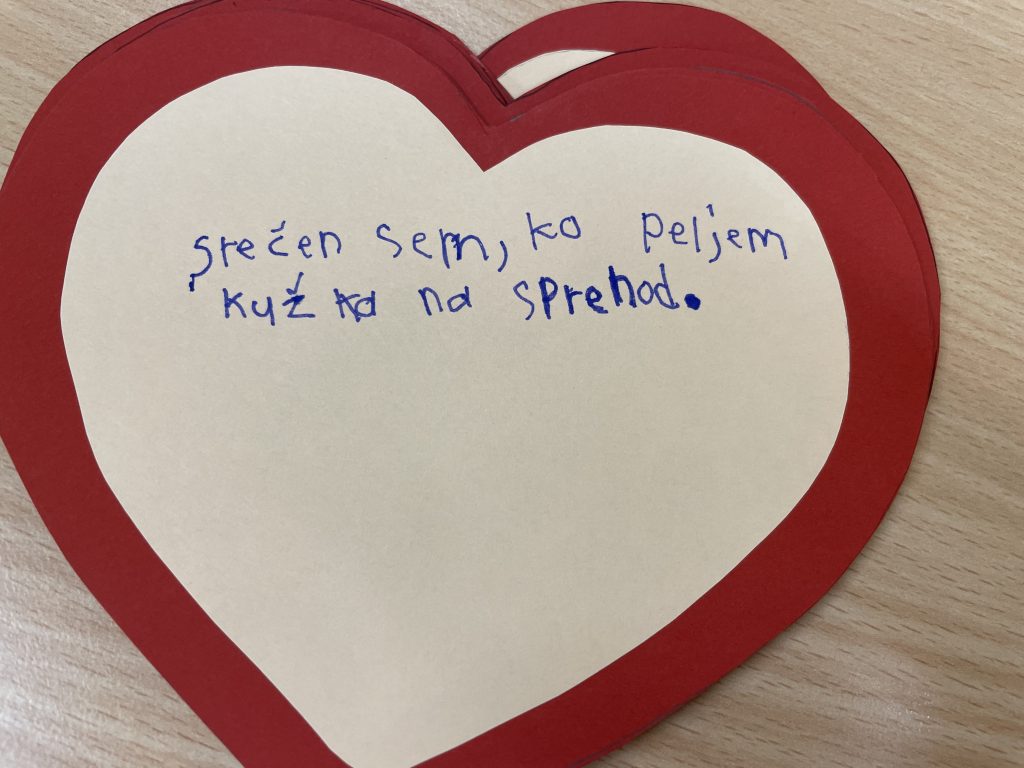 srečen sem, ko peljem
kužka na sprehod.